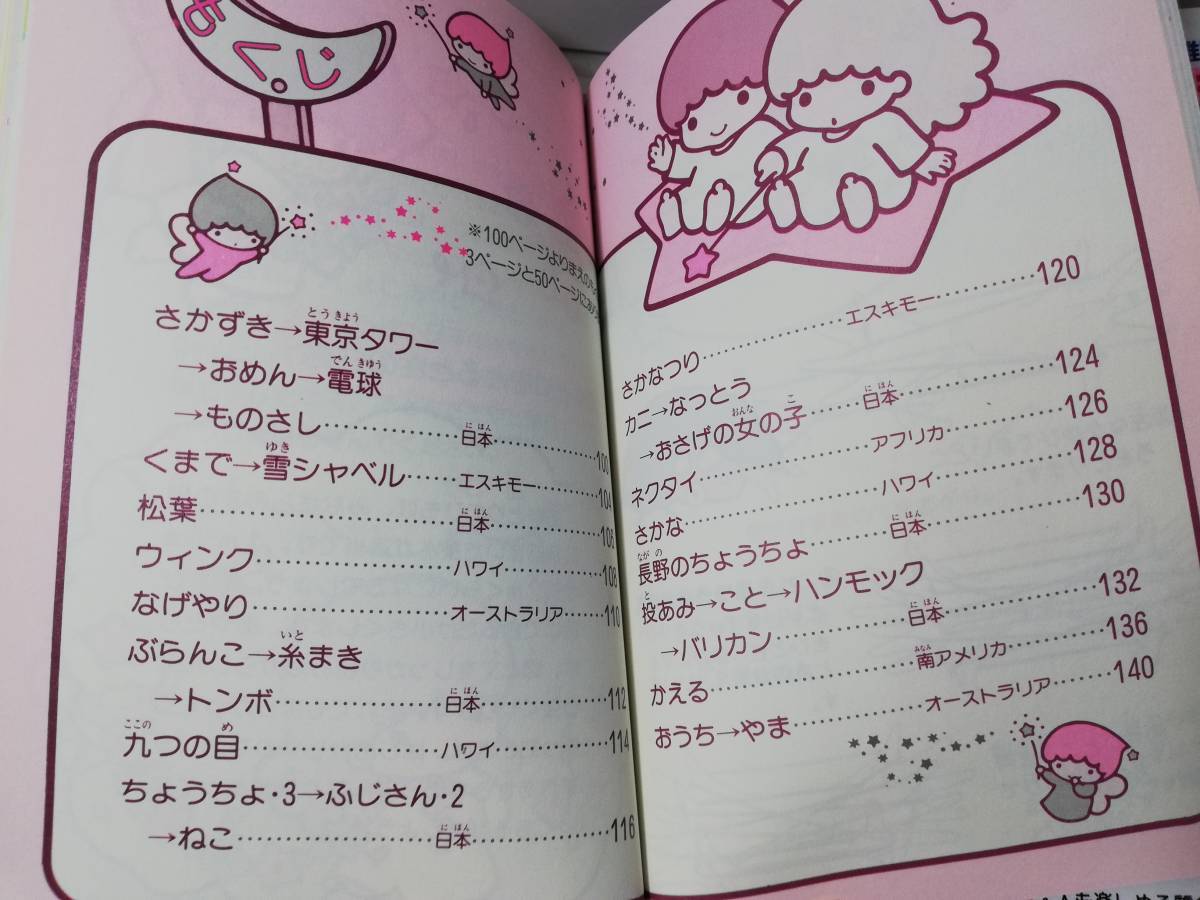 もくじ
※100ページよりまえの
3ページと50ページに
さかずき→東京タワー
→おめん→電球
→ものさし…………日本…………100
くまで→雪シャベル……エスキモー…………104
松葉…………日本…………106
ウィンク…………ハワイ…………108
なげやり…………オーストラリア……110
ぶらんこ→糸まき
→トンボ…………日本…………112
九つの目…………ハワイ…………114
ちょうちょ・3→ふじさん・2
→ねこ…………日本…………116
さかなつり…………エスキモー…………120
カニ→なっとう
→おさげの女の子……日本…………124
ネクタイ…………アフリカ…………126
さかな…………ハワイ…………128
長野のちょうちょ…………日本…………130
投あみ→こと→ハンモック
→バリカン…………日本…………132
かえる…………南アメリカ…………136
おうち→やま…………オーストラリア……140